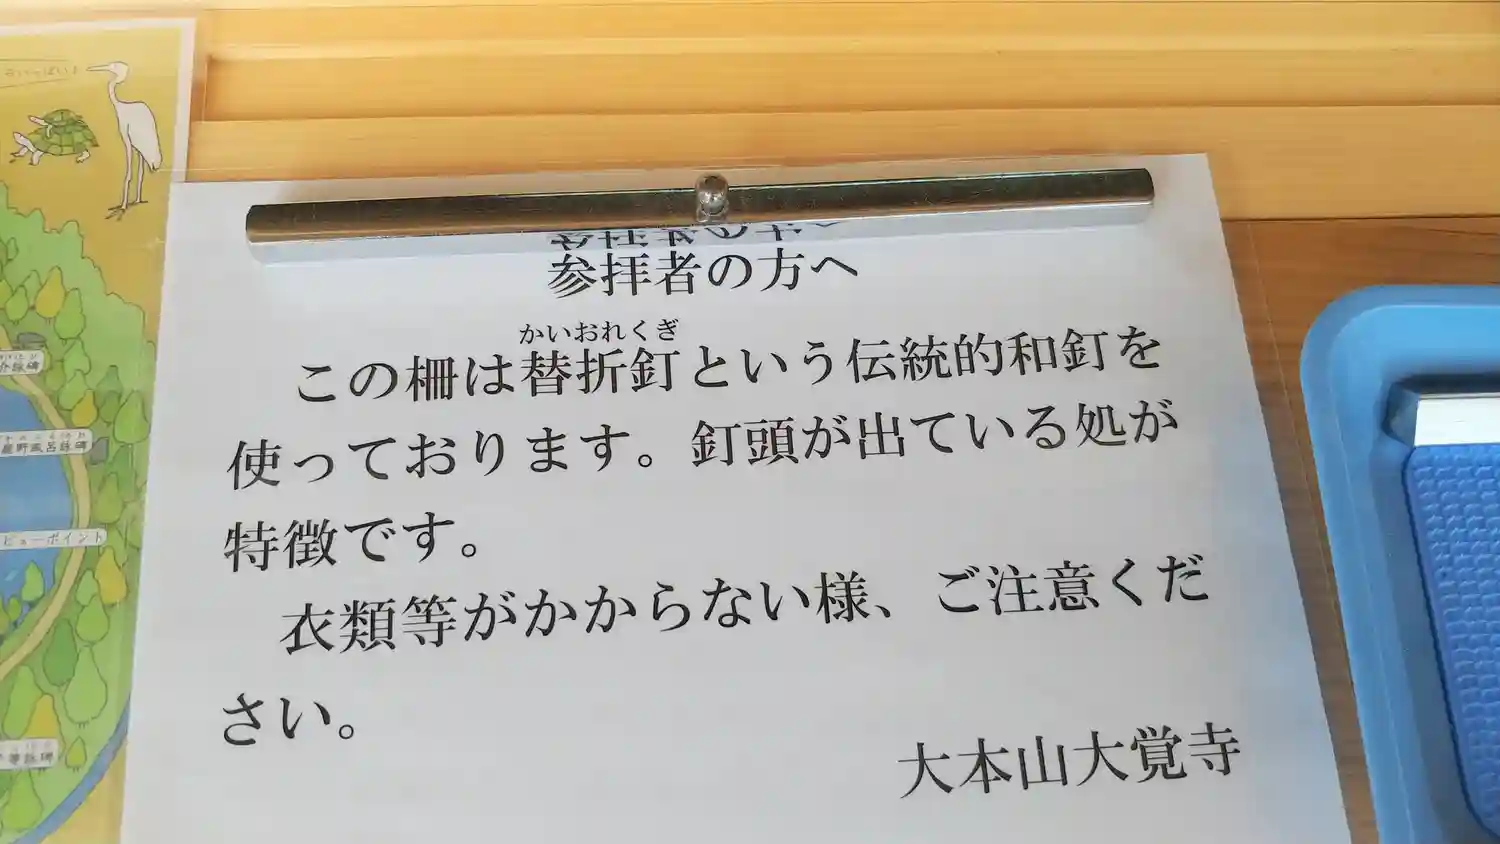 参拝者の方へ
かいおれくぎ
この柵は替折釘という伝統的和釘を
使っております。釘頭が出ている処が
特徴です。
衣類等がかからない様、ご注意くだ
さい。
大本山大覚寺
ビューポイント